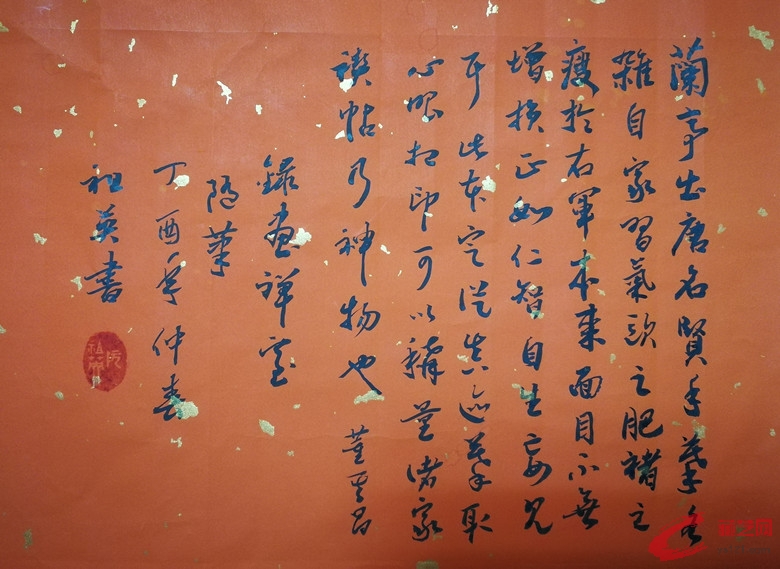 蘭亭出唐名賢手摹各
雜自家習氣歐之肥褚之
瘦於右軍本來面目不無
增損正如仁智自生妄見
耳此本定從真迹摹取
心眼相印可以稱量諸家
禊帖乃神物也 董其昌
錄畫禪室
隨筆
丁酉年仲春
祖英書